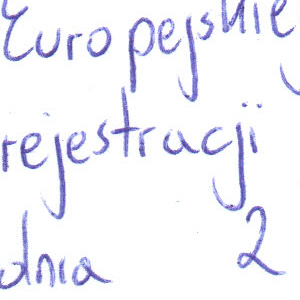 Europejskie
rejestracji
dnia 2